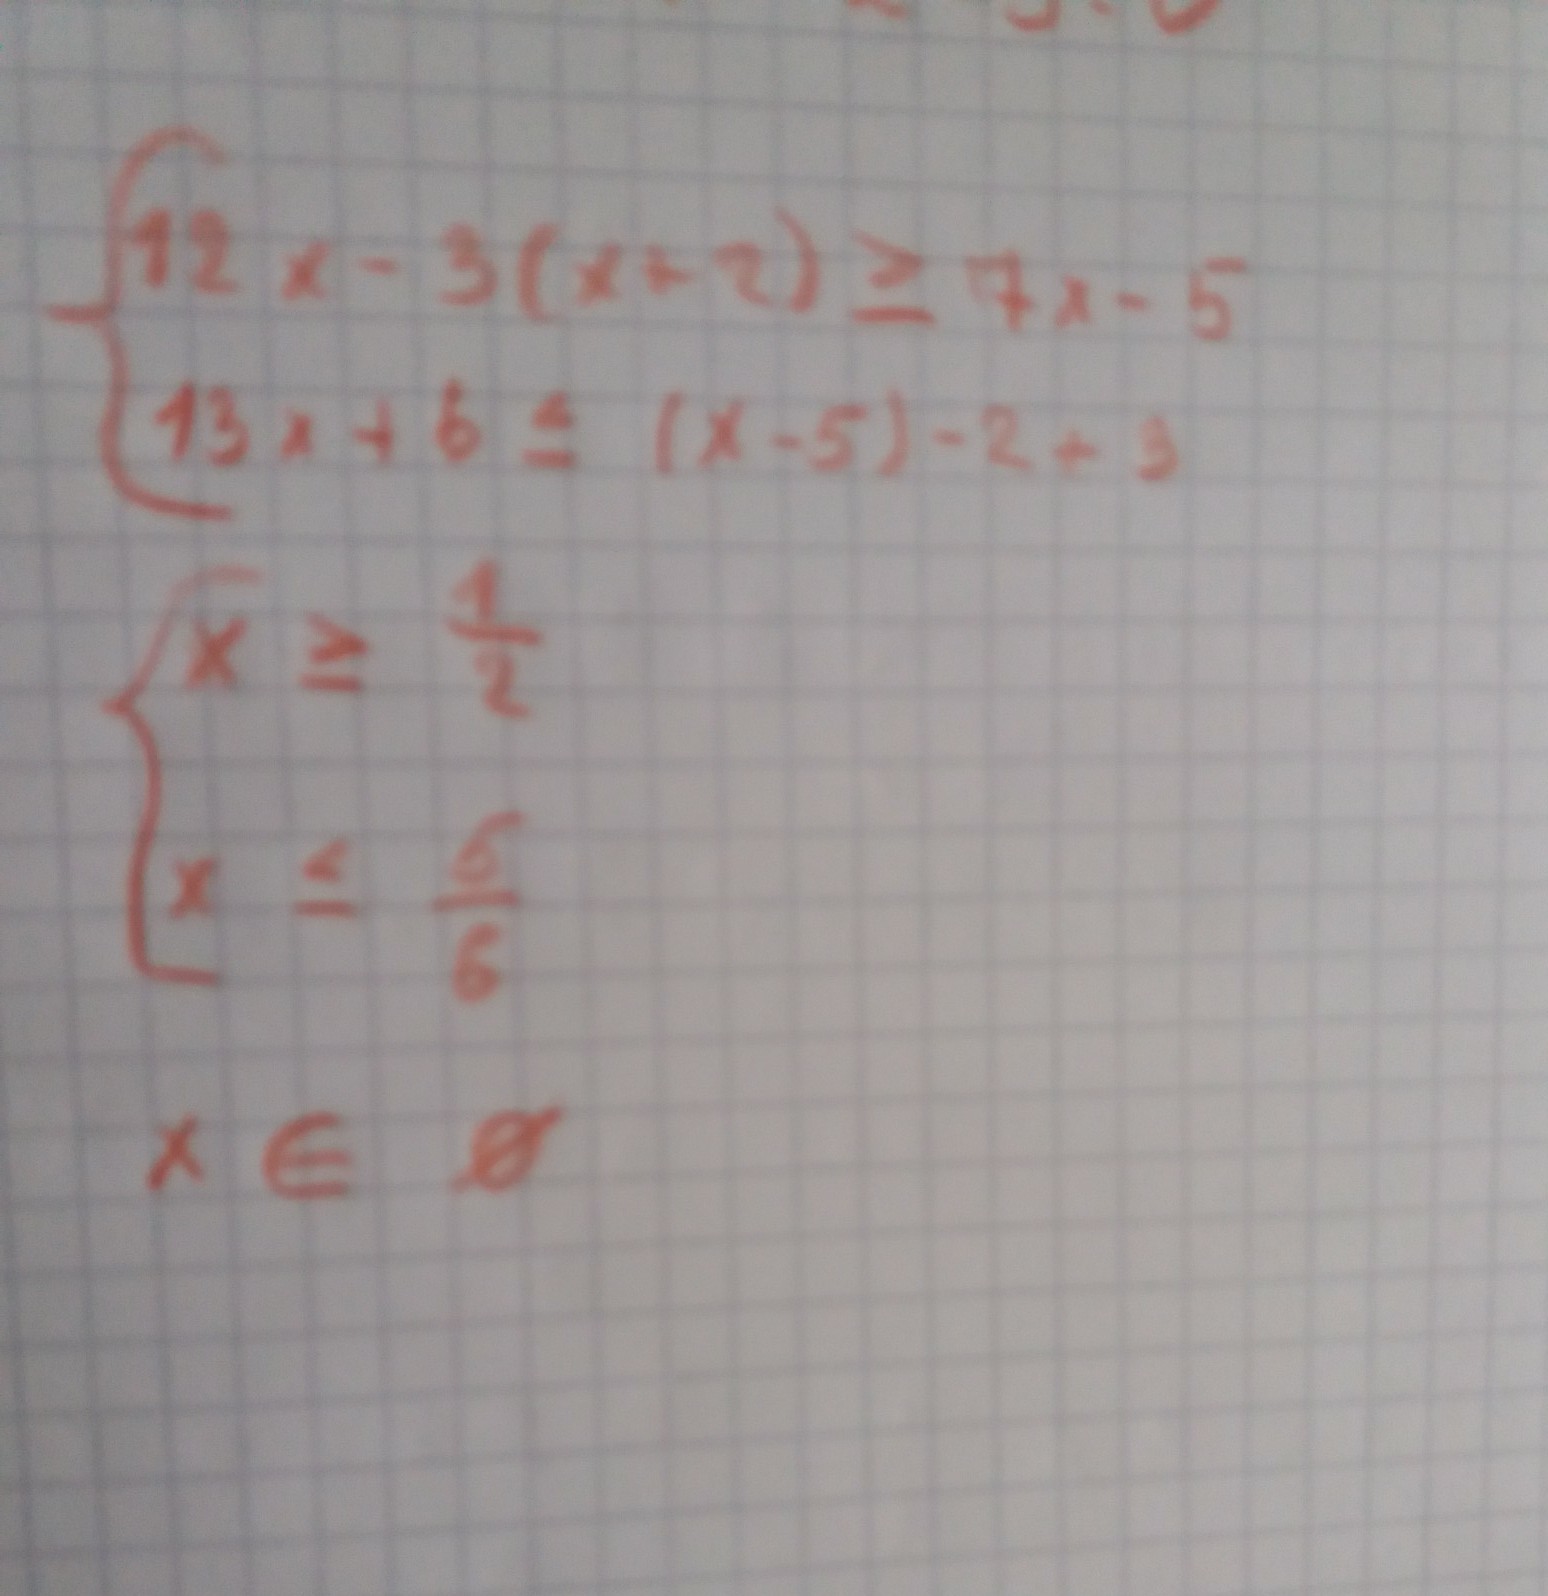 12x - 3(x+2) ≥ 7x - 5
13x + 6 ≤ (x-5) - 2 + 3
x ≥ 1/2
x ≤ 5/6
x ∈ ∅